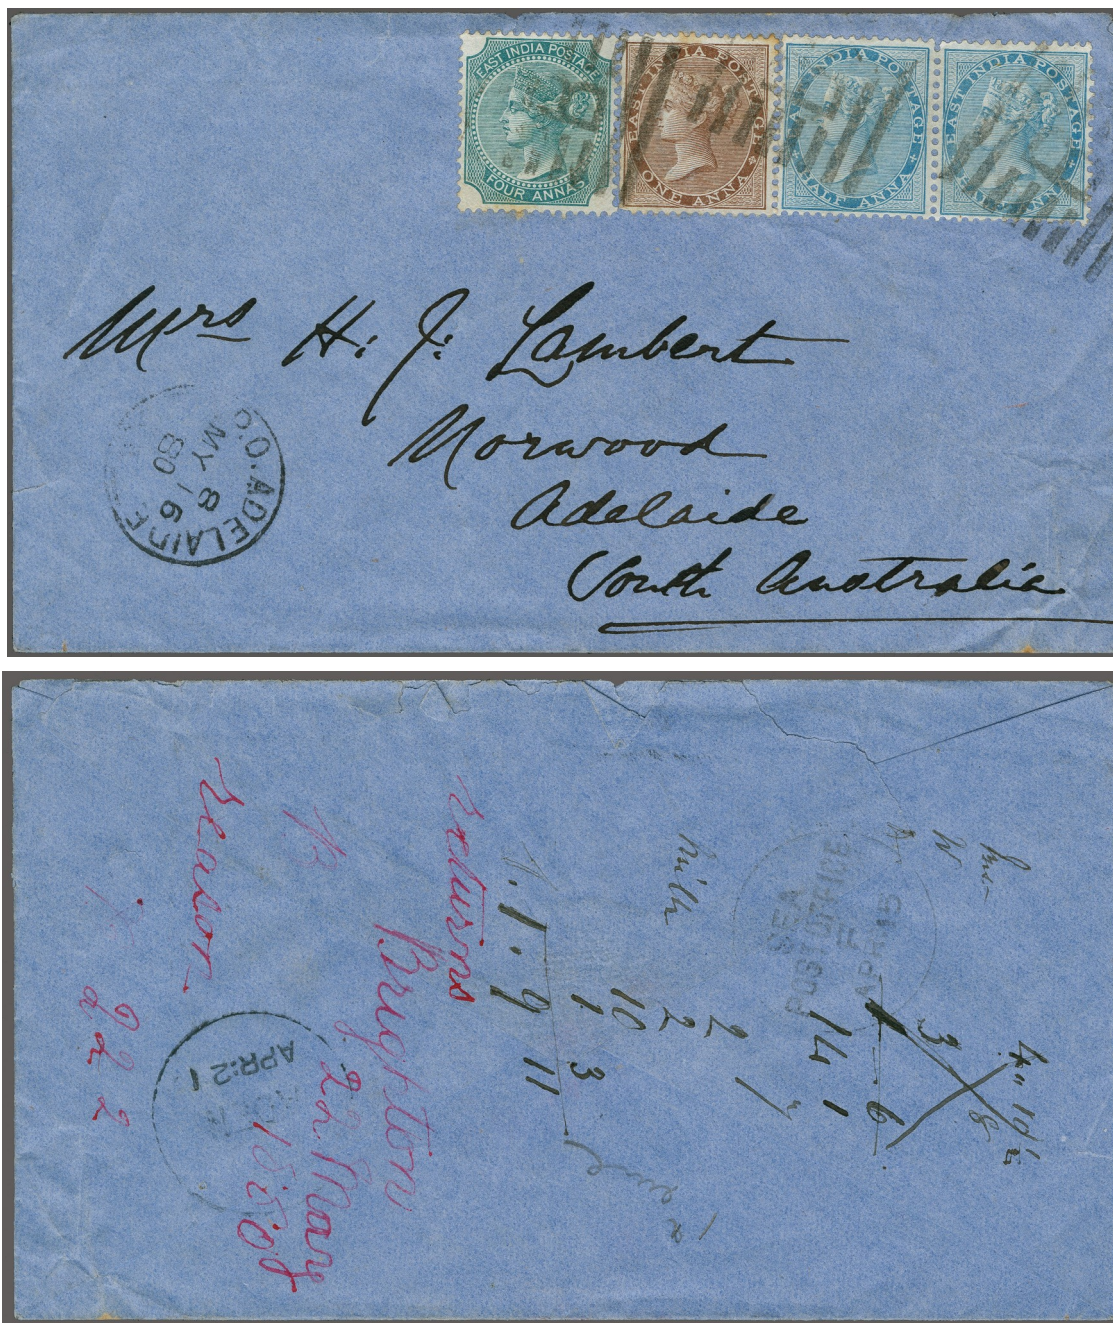 EAST INDIA POSTAGE
FOUR ANNAS
EAST INDIA POSTAGE
ONE ANNA
EAST INDIA POSTAGE
HALF ANNA
EAST INDIA POSTAGE
HALF ANNA
Mrs H. J. Lambert
Norwood
Adelaide
South Australia
G.P.O. ADELAIDE
8
MY 16
80
SEA
POST OFFICE
APR
APR: 21
returns
Brighton
22. May
reason
222
Milk
1. 9 11
1 3
10
2 2
14 1
6
3
8